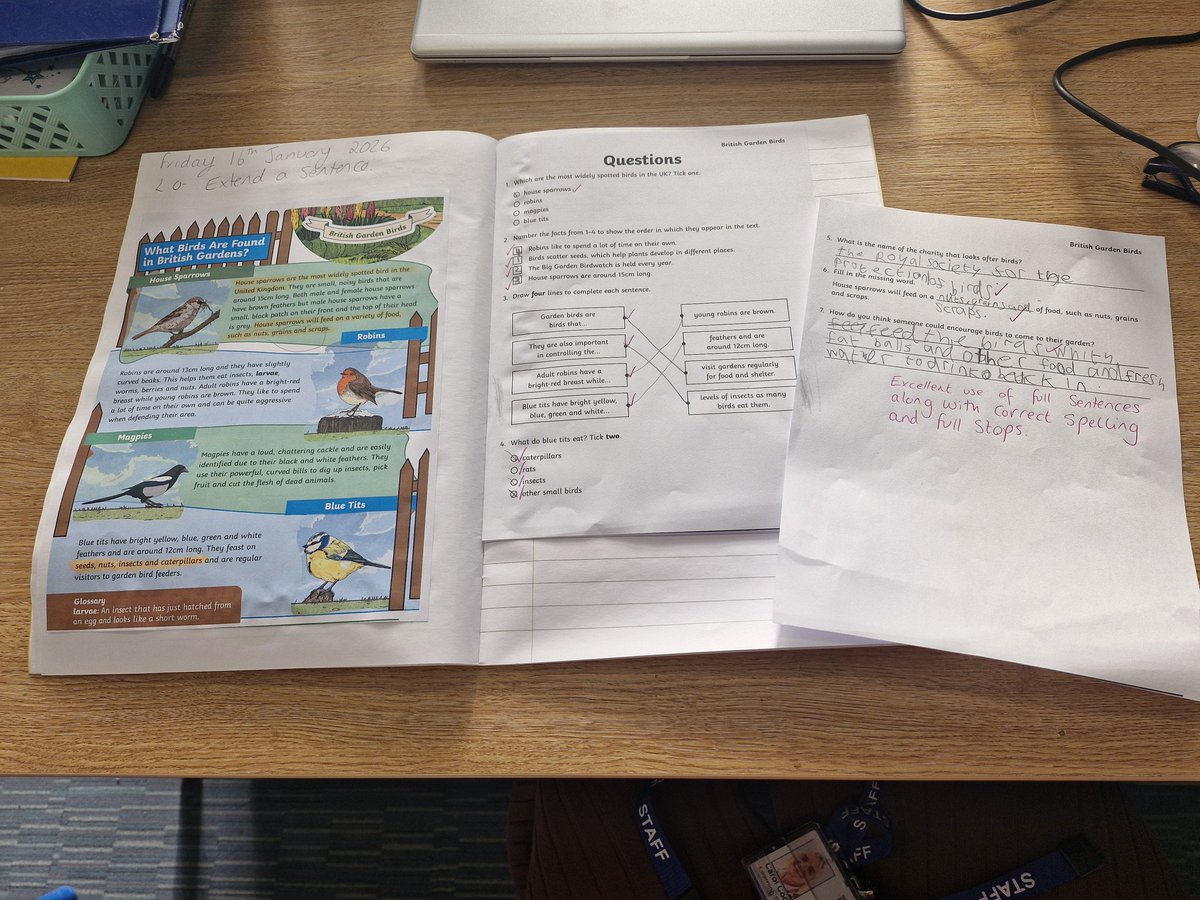 Friday 16th January 2026
L.o- Extend a Sentence.
British Garden Birds
What Birds Are Found
in British Gardens?
House Sparrows
House sparrows are the most widely spotted bird in the
United Kingdom. They are small, noisy birds that are
around 15cm long. Both male and female house sparrows
have brown feathers but male house sparrows have a
small, black patch on their front and the top of their head
is grey. House sparrows will feed on a variety of food,
such as nuts, grains and scraps.
Robins
Robins are around 13cm long and they have slightly
curved beaks. This helps them eat insects, larvae,
worms, berries and nuts. Adult robins have a bright-red
breast while young robins are brown. They like to spend
a lot of time on their own and can be quite aggressive
when defending their area.
Magpies
Magpies have a loud, chattering cackle and are easily
identified due to their black and white feathers. They
use their powerful, curved bills to dig up insects, pick
fruit and cut the flesh of dead animals.
Blue Tits
Blue tits have bright yellow, blue, green and white
feathers and are around 12cm long. They feast on
seeds, nuts, insects and caterpillars and are regular
visitors to garden bird feeders.
Glossary
larvae: An insect that has just hatched from
an egg and looks like a short worm.
British Garden Birds
Questions
1. Which are the most widely spotted birds in the UK? Tick one.
house sparrows
robins
magpies
blue tits
2. Number the facts from 1-4 to show the order in which they appear in the text.
Robins like to spend a lot of time on their own.
Birds scatter seeds, which help plants develop in different places.
The Big Garden Birdwatch is held every year.
House sparrows are around 15cm long.
3. Draw four lines to complete each sentence.
Garden birds are
birds that...
They are also important
in controlling the...
Adult robins have a
bright-red breast while...
Blue tits have bright yellow,
blue, green and white...
young robins are brown.
feathers and are
around 12cm long.
visit gardens regularly
for food and shelter.
levels of insects as many
birds eat them.
4. What do blue tits eat? Tick two.
caterpillars
rats
insects
other small birds
British Garden Birds
5. What is the name of the charity that looks after birds?
the royal society for the
protection os birds
6. Fill in the missing word.
House sparrows will feed on a nuts, grains and of food, such as nuts, grains
scraps.
and scraps.
7. How do you think someone could encourage birds to come to their garden?
feed the birds with
fat balls and other food and fresh
water to drink
Excellent use of full Sentences
along with correct Spelling
and full Stops.
STAFF
STAFF
STAFF
Carol